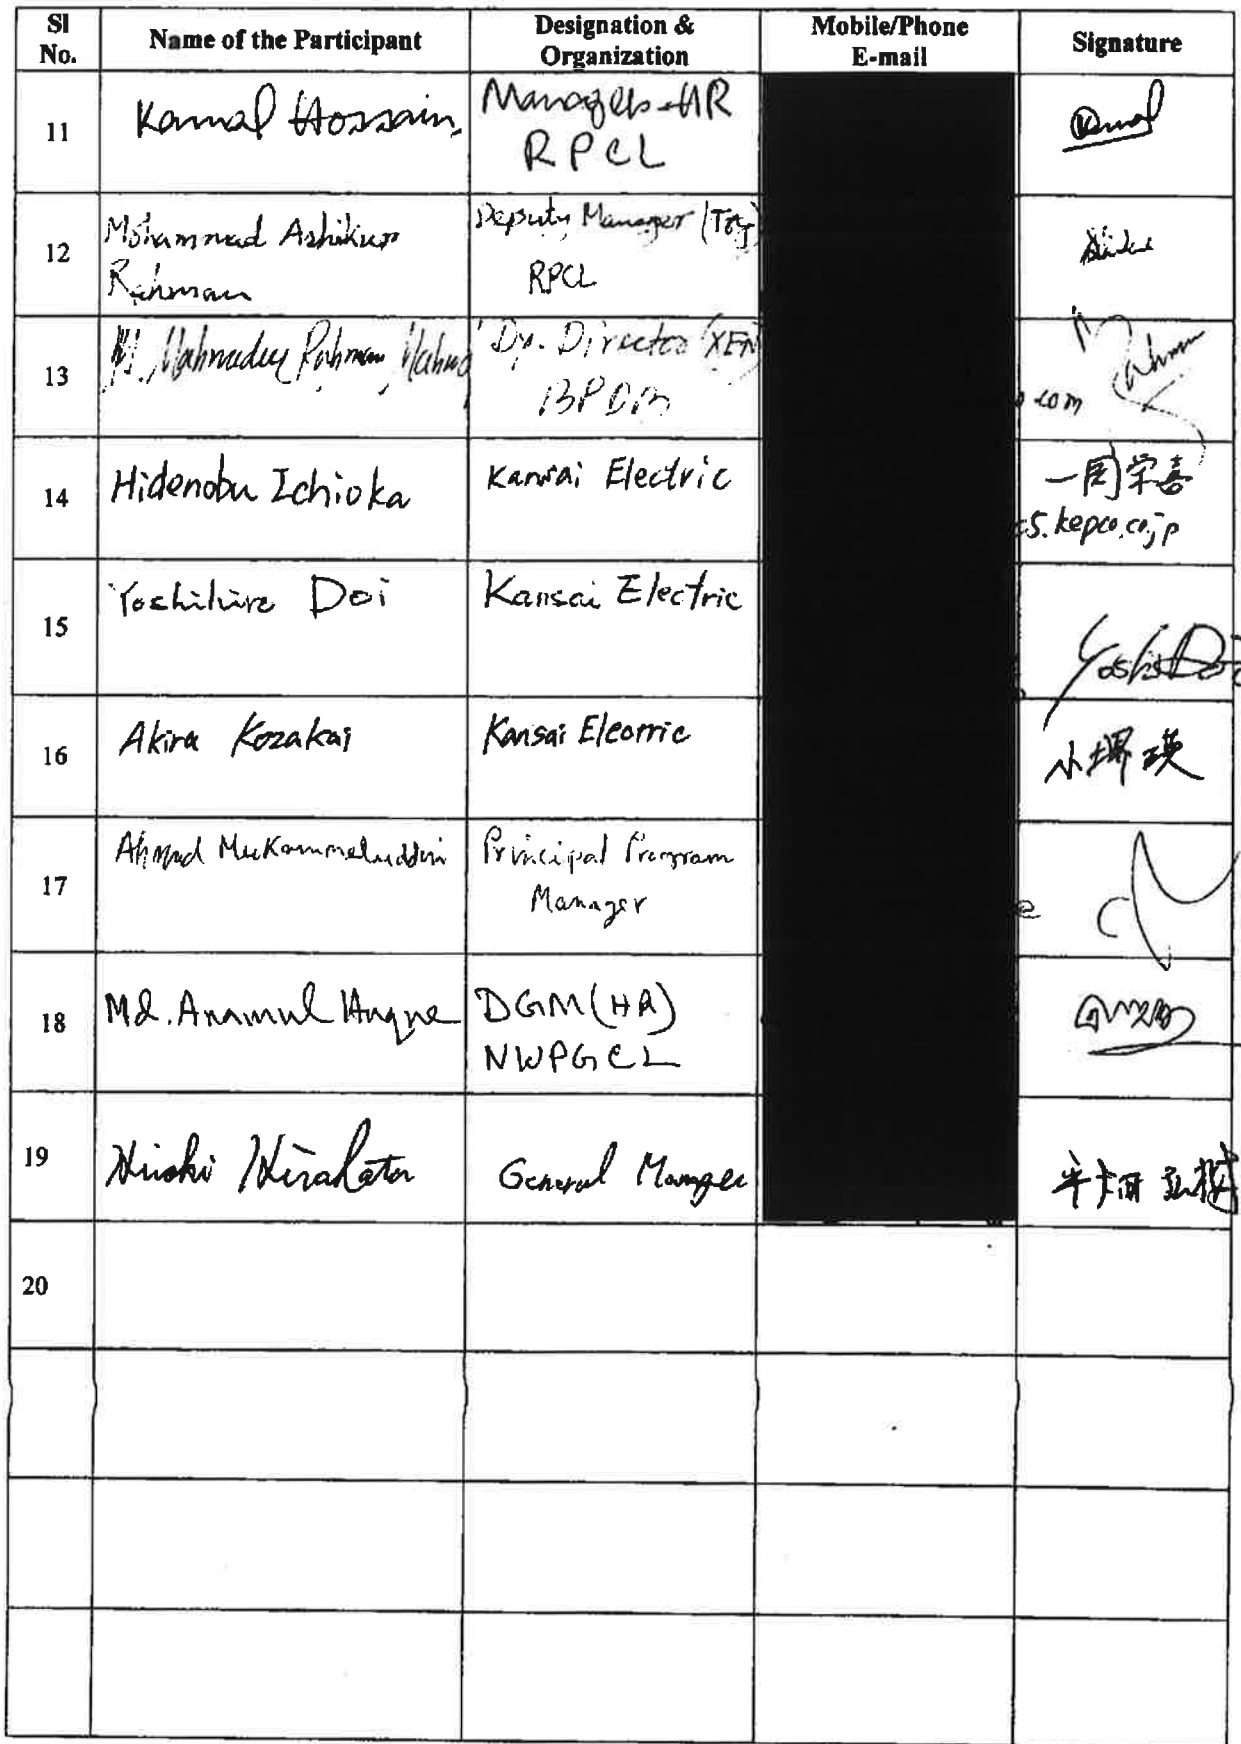 Sl No. Name of the Participant Designation & Organization Mobile/Phone E-mail Signature
11 Kamal Hossain, Manager-HR
RPCL
12 Mohammad Ashikur Deputy Manager
Rahman RPCL
13 Rahman Dy. Director (XEN)
BPDB
.com
14 Hidenobu Ichioka Kansai Electric 一岡栄喜
s5.kepco.co.jp
15 Yoshihiro Doi Kansai Electric Yoshi Doi
16 Akira Kozakai Kansai Elecrric 小堺 瑛
17 Ahmad Mukammeluddin Principal Program
Manager
e
18 Md. Anamul Huque DGM (HR)
NWPGCL
19 Hiroki Hirahata General Manager 平畑
20